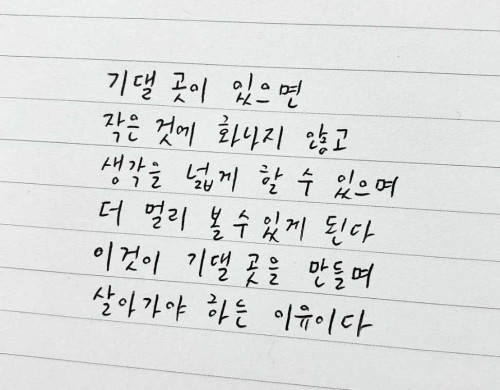 기댈 곳이 있으면
작은 것에 화나지 않고
생각을 넓게 할 수 있으며
더 멀리 볼 수 있게 된다
이것이 기댈 곳을 만들며
살아가야 하는 이유이다